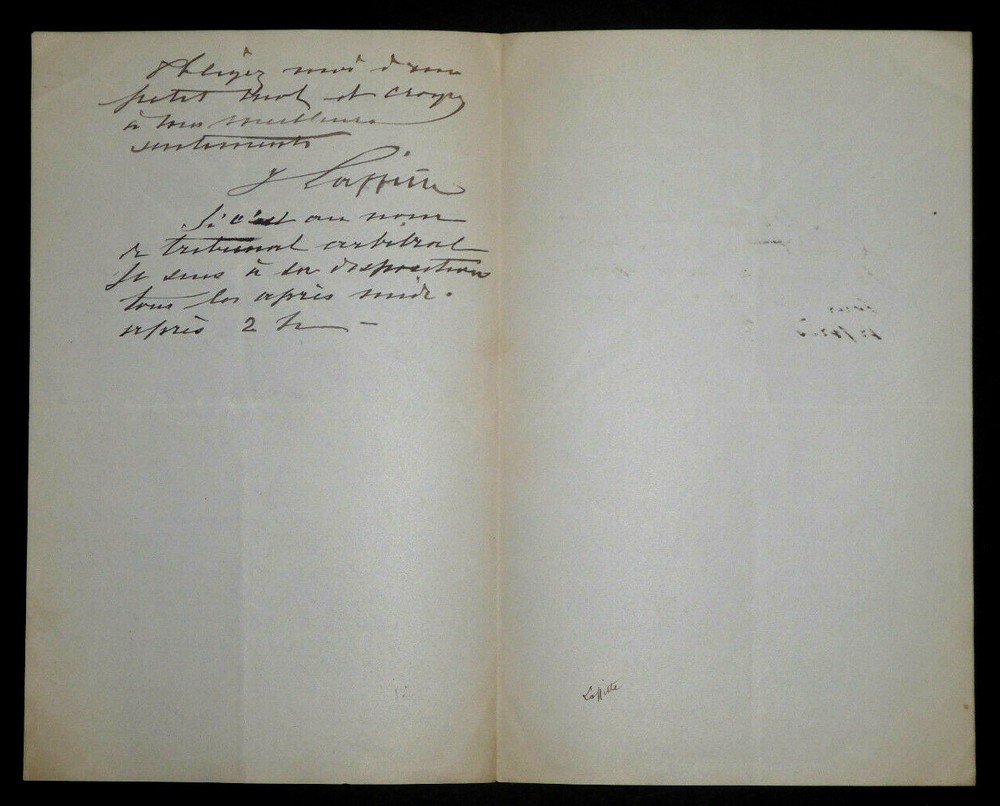 Obligez moi d'un
petit mot et croyez
à mes meilleurs
sentiments
J Laffitte
Si c'est au nom
du tribunal arbitral
je suis à sa disposition
tous les après midi.
après 2 h —
Laffitte